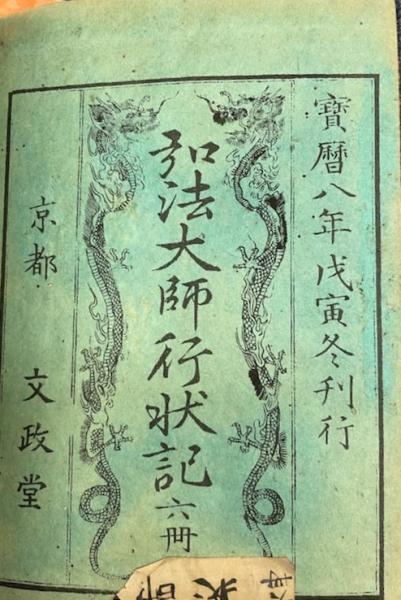 寶曆八年戊寅冬刊行
弘法大師行状記 六冊
京都 文政堂